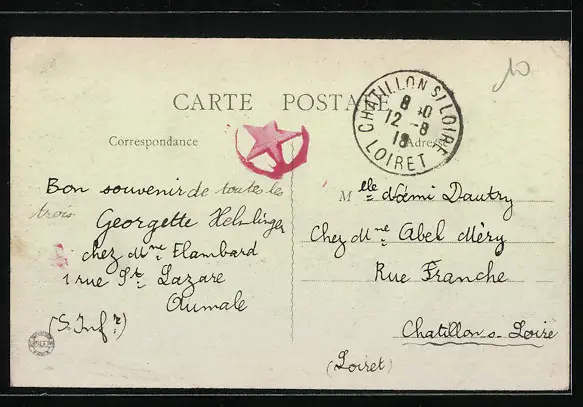 10
CARTE POSTALE
CHATILLON S/ LOIRE
8 30
12 -8
18
LOIRET
Correspondance
Adresse
Bon souvenir de toutes les
trois
Georgette Helmlinger
chez Mme Flambard
1 rue St. Lazare
Aumale
(S. Infre)
Melle Noémi Dautry
Chez Mme Abel Méry
Rue Franche
Chatillon s- Loire
(Loiret)